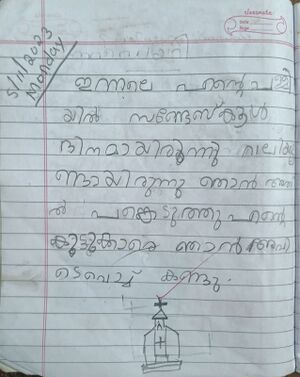 classmate
Date
Page
5/11/2023
Monday
ഇന്നലെ എന്റെ പള്ളി
യിൽ സണ്ടേസ്കൂൾ
ദിനമായിരുന്നു റാലിയു
ണ്ടായിരുന്നു ഞാൻ അതി
ൽ പങ്കെടുത്തു എന്റെ
കൂട്ടുകാരെ ഞാൻ അവി
ടെവെച്ച് കണ്ടു.